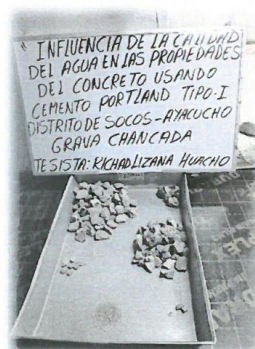 " INFLUENCIA DE LA CALIDAD
DEL AGUA EN LAS PROPIEDADES
DEL CONCRETO USANDO
CEMENTO PORTLAND TIPO-I
DISTRITO DE SOCOS-AYACUCHO
GRAVA CHANCADA
TESISTA: RICHAD LIZANA HUACHO